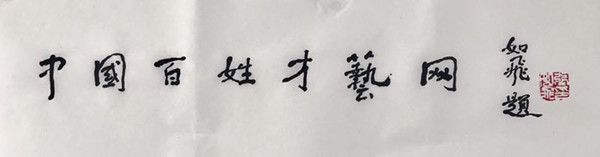 中國百姓才藝网
如飛題